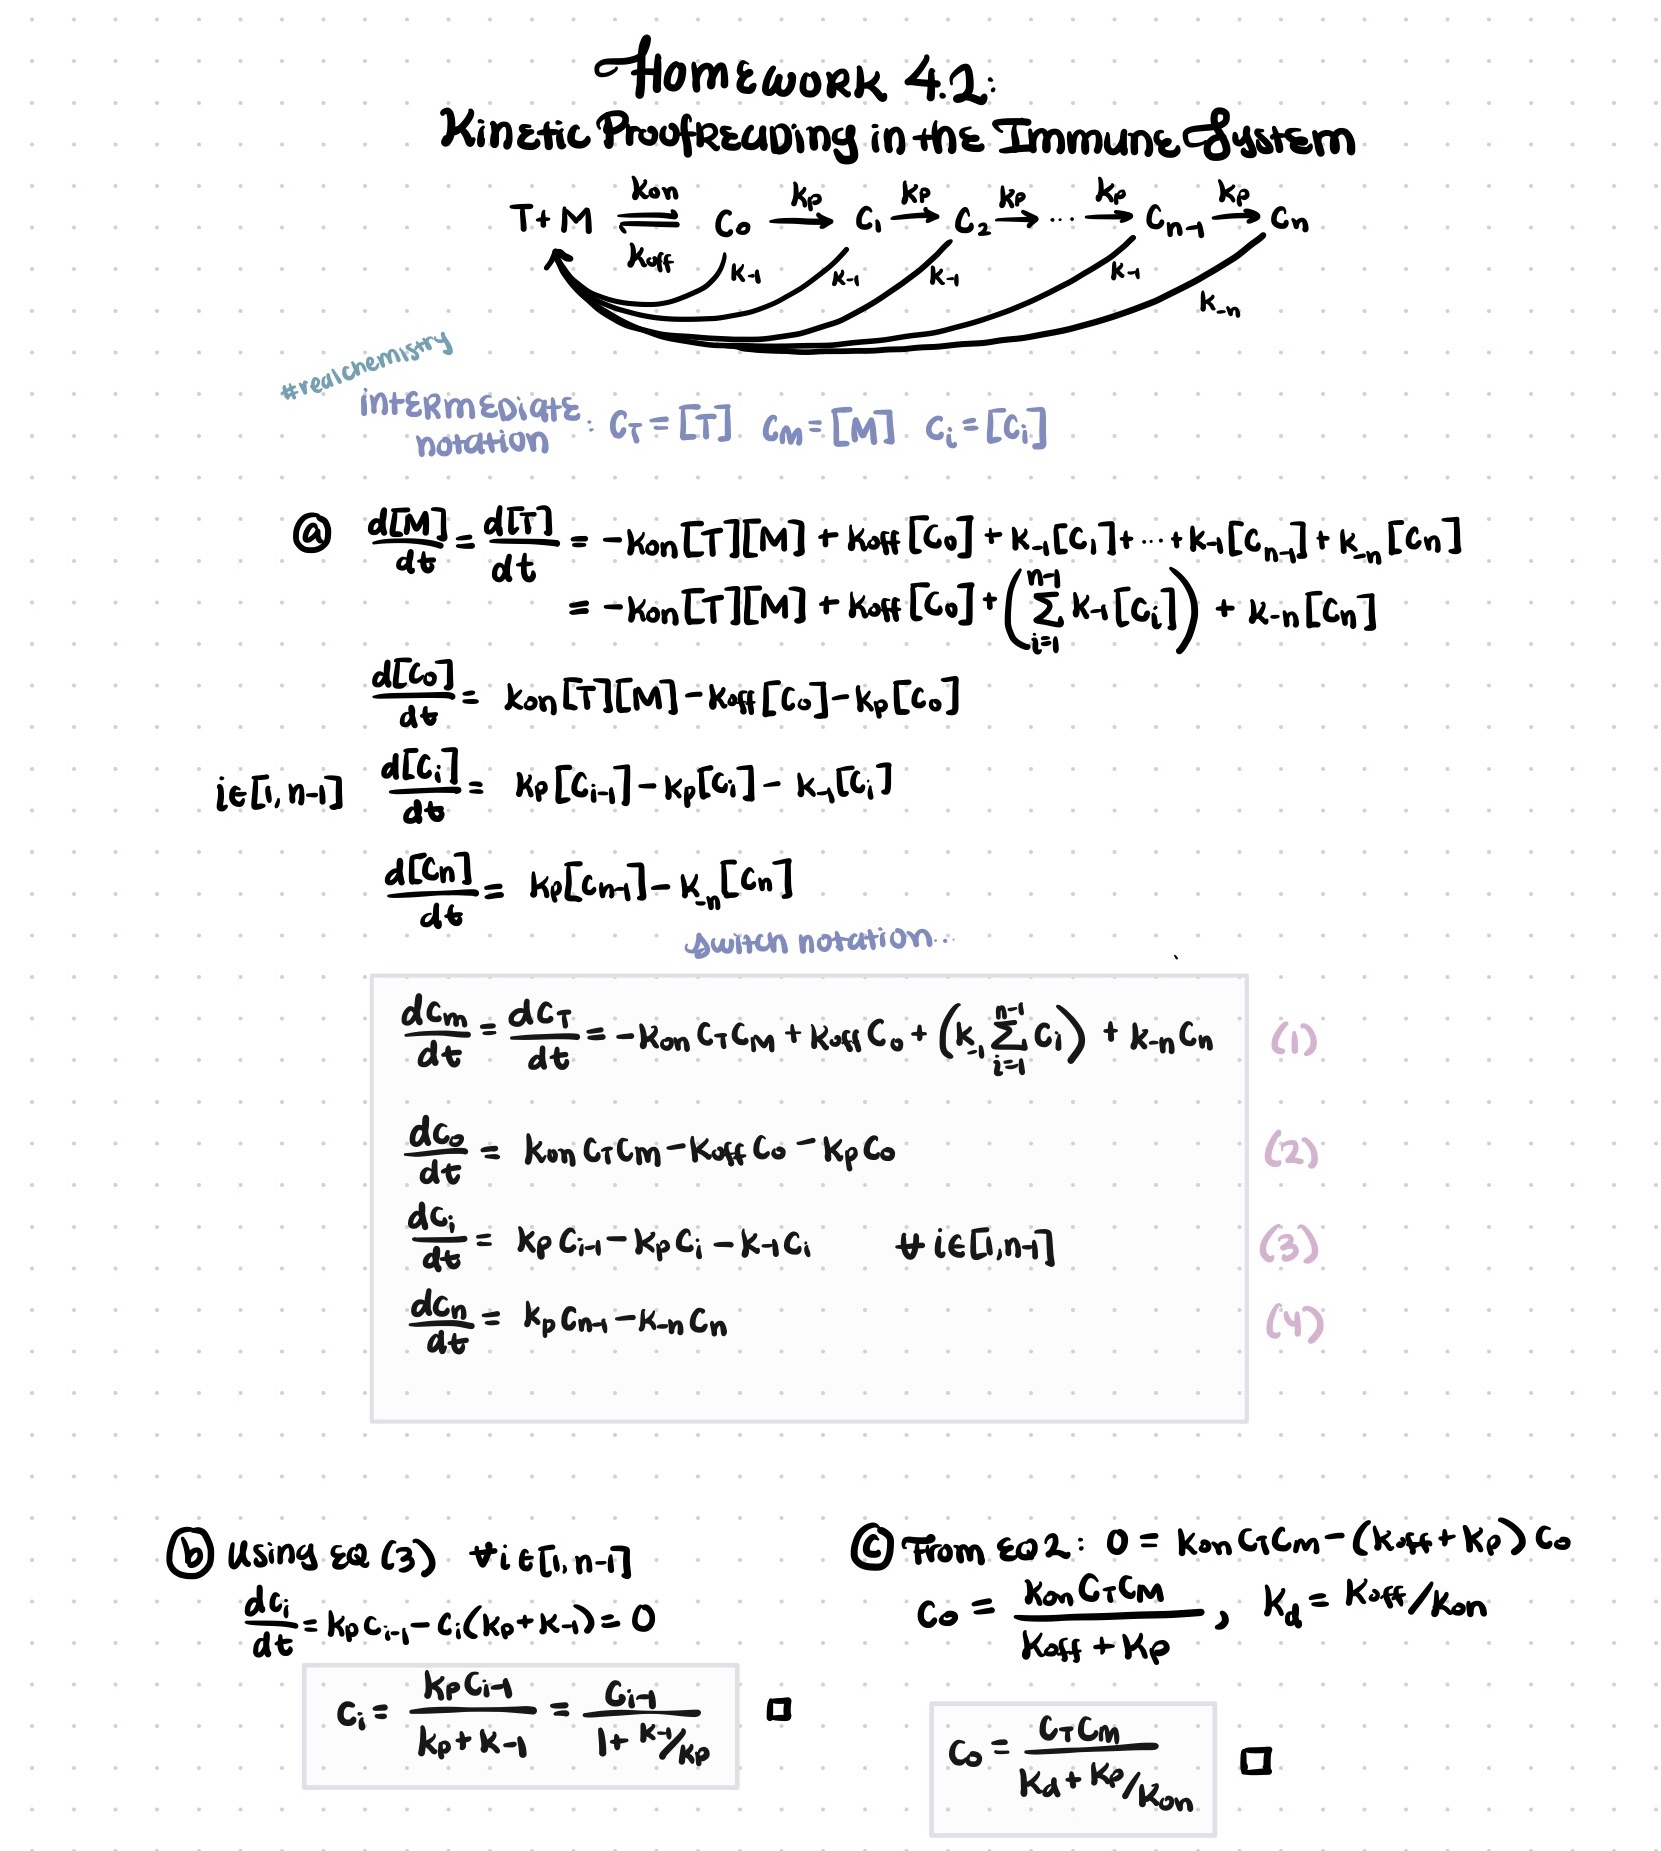 Homework 4.2:
Kinetic Proofreading in the Immune System
T + M ⇌ C₀ → C₁ → C₂ → ... → Cₙ₋₁ → Cₙ
kon kp kp kp kp kp
koff k₋₁ k₋₁ k₋₁ k₋₁ k₋ₙ
#realchemistry
intermediate notation: C_T = [T] C_M = [M] C_i = [C_i]
(a) d[M]/dt = d[T]/dt = -kon[T][M] + koff[C₀] + k₋₁[C₁] + ... + k₋₁[Cₙ₋₁] + k₋ₙ[Cₙ]
= -kon[T][M] + koff[C₀] + (∑_{i=1}^{n-1} k₋₁[C_i]) + k₋ₙ[Cₙ]
d[C₀]/dt = kon[T][M] - koff[C₀] - kp[C₀]
i∈[1, n-1] d[C_i]/dt = kp[C_{i-1}] - kp[C_i] - k₋₁[C_i]
d[Cₙ]/dt = kp[Cₙ₋₁] - k₋ₙ[Cₙ]
switch notation...
dC_M/dt = dC_T/dt = -kon C_T C_M + koff C₀ + (k₋₁ ∑_{i=1}^{n-1} C_i) + k₋ₙ Cₙ (1)
dC₀/dt = kon C_T C_M - koff C₀ - kp C₀ (2)
dC_i/dt = kp C_{i-1} - kp C_i - k₋₁ C_i ∀ i∈[1, n-1] (3)
dCₙ/dt = kp Cₙ₋₁ - k₋ₙ Cₙ (4)
(b) Using EQ (3) ∀ i ∈ [1, n-1]
dC_i/dt = kp C_{i-1} - C_i(kp + k₋₁) = 0
C_i = kp C_{i-1} / (kp + k₋₁) = C_{i-1} / (1 + k₋₁/kp) □
(c) From EQ 2: 0 = kon C_T C_M - (koff + kp) C₀
C₀ = kon C_T C_M / (koff + kp), K_d = koff/kon
C₀ = C_T C_M / (K_d + kp/kon) □